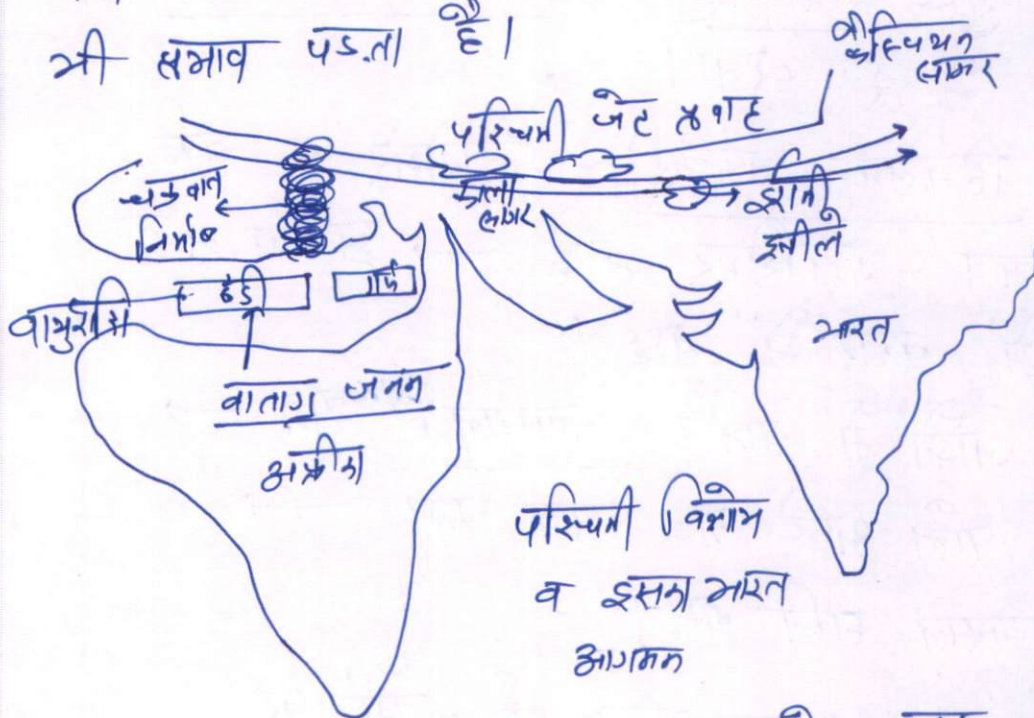 भी प्रभाव पड़ता है।
कैस्पियन
सागर
पश्चिमी जेट प्रवाह
चक्रवात
निर्माण
काला
सागर
ईरानी
झील
ठंडी
गर्म
वायुराशि
भारत
वाताग्र जनन
अफ्रीका
पश्चिमी विक्षोभ
व इसका भारत
आगमन